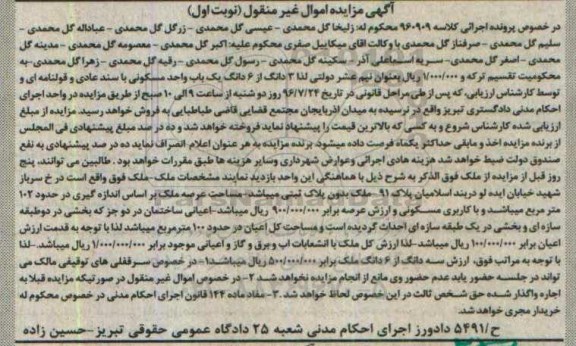 آگهی مزایده اموال غیر منقول (نوبت اول)
در خصوص پرونده اجرائی کلاسه ۹۶۰۹۰۹ محکوم له: زلیخا گل محمدی - عیسی گل محمدی - زرگل گل محمدی - عباداله گل محمدی -
سلیم گل محمدی - صرفناز گل محمدی با وکالت اقای میکاییل صفری محکوم علیه: اکبر گل محمدی - معصومه گل محمدی - مدینه گل
محمدی - اصغر گل محمدی - سریه اسماعلی آذر - سکینه گل محمدی - رسول گل محمدی - رقیه گل محمدی - زهرا گل محمدی - به
محکومیت تقسیم ترکه و ۱/۰۰۰/۰۰۰ ریال بعنوان نیم عشر دولتی لذا ۳ دانگ از ۶ دانگ یک باب واحد مسکونی با سند عادی و قولنامه ای و
توسط کارشناس ارزیابی، که پس از طی مراحل قانونی در تاریخ ۹۶/۷/۲۴ روز دو شنبه از ساعت ۹ الی ۱۰ صبح از طریق مزایده در واحد اجرای
احکام مدنی دادگستری تبریز واقع در نرسیده به میدان اذربایجان مجتمع قضایی قاضی طباطبایی به فروش خواهد رسید. مزایده از مبلغ
ارزیابی شده کارشناس شروع و به کسی که بالاترین قیمت را پیشنهاد نماید فروخته خواهد شد و ده در صد مبلغ پیشنهادی فی المجلس
از برنده مزایده اخذ و مابقی حداکثر یکماه فرصت داده میشود. برنده مزایده به هر عنوان اعلام انصراف نماید ده در صد پیشنهادی به نفع
صندوق دولت ضبط خواهد شد هزینه هادی اجرائی وعوارض شهرداری وسایر هزینه ها طبق مقررات خواهد بود. طالبین می توانند، پنج
روز قبل از مزایده از ملک فوق الذکر به شرح ذیل با هماهنگی این واحد بازدید نمایند مشخصات ملک -ملک فوق واقع است در خ سرباز
شهید خیابان ایده لو دربند اسلامیان پلاک ۹۱ -ملک بدون پلاک ثبتی میباشد-مساحت عرصه ملک بر اساس اندازه گیری در حدود ۱۰۲
متر مربع میباشد و با کاربری مسکونی و ارزش عرصه برابر ۹۰۰/۰۰۰/۰۰۰ ریال میباشد-اعیانی ساختمان در دو جز که بخشی در دوطبقه
سازه ای و بخشی در یک طبقه سازه ای احداث گردیده است و مساحت کل اعیان در حدود ۱۰۰ مترمربع میباشد لذا با توجه به قدمت ارزش
اعیان برابر ۱۰۰/۰۰۰/۰۰۰ ریال میباشد-لذا ارزش کل ملک با انشعابات اب و برق و گاز و اعیانی موجود برابر ۱/۰۰۰/۰۰۰/۰۰۰ ریال میباشد.-لذا
با توجه به مراتب فوق، ارزش سه دانگ از ۶ دانگ ملک برابر ۵۰۰/۰۰۰/۰۰۰ ریال میباشد۱- در خصوص سرقفلی های توقیفی مالک می
تواند در جلسه حضور یابد عدم حضور وی مانع از انجام مزایده نخواهد شد ۲- در خصوص اموال غیر منقول در صورتیکه مزایده قبلا به
اجاره واگذار شده حق شخص ثالث در این خصوص لحاظ خواهد شد .۳- مفاد ماده ۱۴۴ قانون اجرای احکام مدنی در خصوص محکوم له
خریدار مجری خواهد شد.
ح/۵۴۹۱ دادورز اجرای احکام مدنی شعبه ۲۵ دادگاه عمومی حقوقی تبریز-حسین زاده